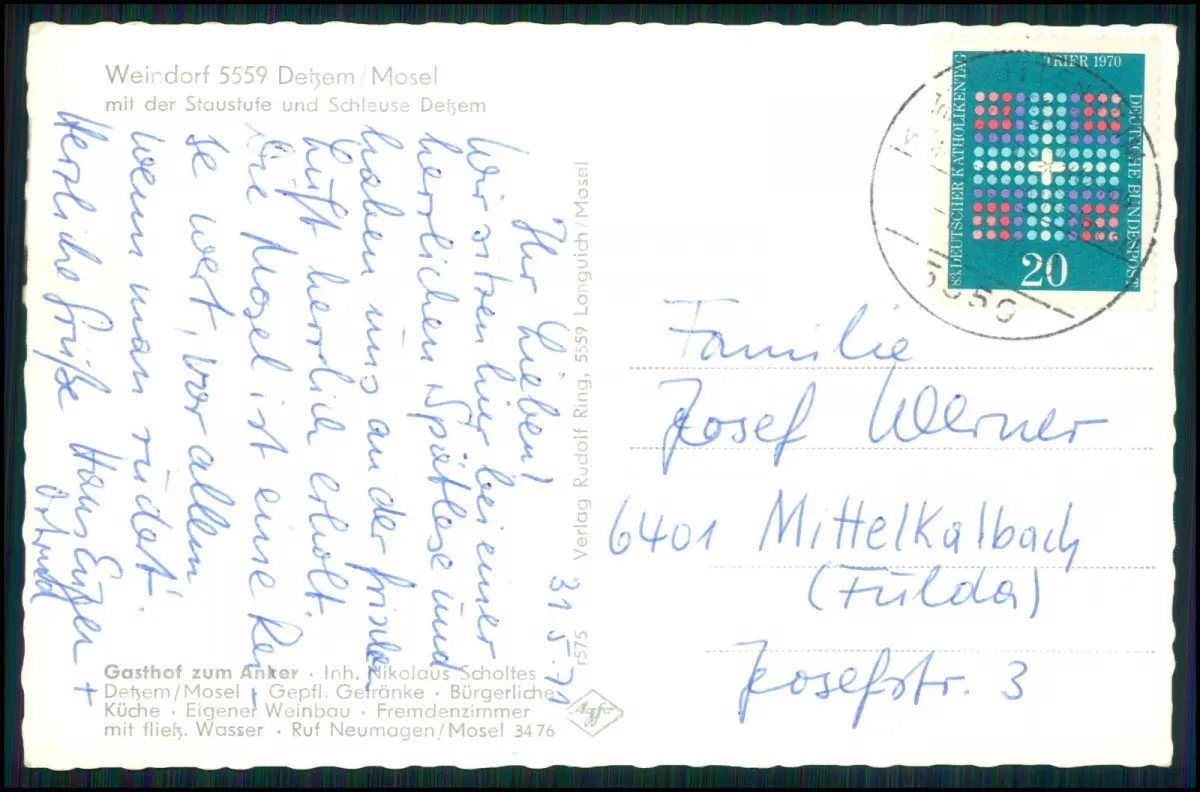 Weindorf 5559 Detzem/Mosel
mit der Staustufe und Schleuse Detzem
31.5.71
Ihr Lieben!
Wir sitzen hier bei einer
herrlichen Spätlese und
haben uns an der frischen
Luft herrlich erholt.
Die Mosel ist eine Rei-
se wert, vor allem
wenn man rudert.
Herzliche Grüße Hans Eugen +
Ortrud
Gasthof zum Anker · Inh. Nikolaus Scholtes
Detzem/Mosel · Gepfl. Getränke · Bürgerliche
Küche · Eigener Weinbau · Fremdenzimmer
mit fließ. Wasser · Ruf Neumagen/Mosel 3476
Verlag Rudolf Ring, 5559 Longuich/Mosel
r575
Agfa
TRIER 1970
83. DEUTSCHER KATHOLIKENTAG
DEUTSCHE BUNDESPOST
20
Familie
Josef Werner
6401 Mittelkalbach
(Fulda)
Josefstr. 3